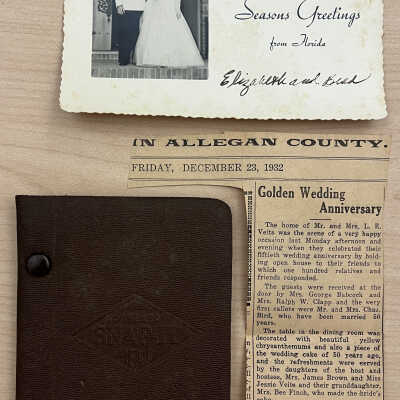 Seasons Greetings
from Florida
Elizabeth and
IN ALLEGAN COUNTY.
FRIDAY, DECEMBER 23, 1932
Golden Wedding
Anniversary
The home of Mr. and Mrs. L. E.
Veits was the scene of a very happy
occasion last Monday afternoon and
evening when they celebrated their
fiftieth wedding anniversary by hold-
ing open house to their friends to
which one hundred relatives and
friends responded.
The guests were received at the
door by Mrs. George Babcock and
Mrs. Ralph W. Clapp and the very
first callers were Mr. and Mrs. Chas.
Bird, who have been married 50
years.
The table in the dining room was
decorated with beautiful yellow
chrysanthemums and also a piece of
the wedding cake of 50 years ago,
and the refreshments were served
by the daughters of the host and
hostess, Mrs. James Brown and Miss
Jessie Veits and their granddaughter,
Mrs. Bee Finch, who made the bride's
SNAP-IT